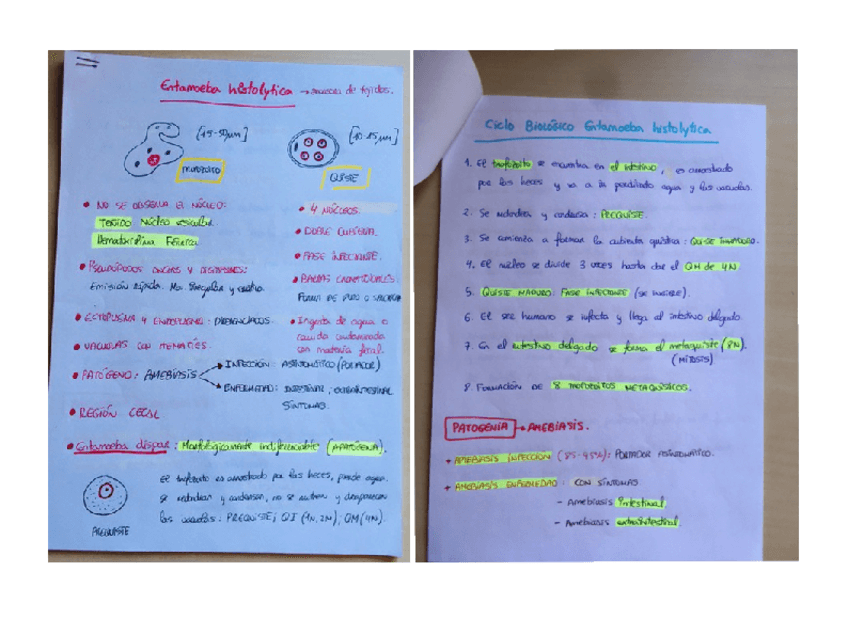 Entamoeba histolytica → invasora de tejidos.
[15-50µm]
TROFOZOITO
[10-15µm]
QUISTE
• NO SE OBSERVA EL NÚCLEO:
TEÑIDO Núcleo vesicular
Hematoxilina Férrica
• Pseudópodos ANCHOS Y DIGITIFORMES:
Emisión rápida. Mov. Irregular y
• ECTOPLASMA Y ENDOPLASMA: DIFERENCIADOS.
• VACUOLAS CON HEMATÍES.
• PATÓGENO: AMEBIASIS
INFECCIÓN: ASINTOMÁTICO (PORTADOR)
ENFERMEDAD: INTESTINAL; EXTRAINTESTINAL
SÍNTOMAS.
• REGIÓN CECAL
• 4 NÚCLEOS.
• DOBLE CUBIERTA.
• FASE INFECTANTE.
• BARRAS CROMATOIDALES:
FORMA DE PURO O SALCHICHA
• Ingesta de agua o
comida contaminada
con materia fecal.
• Entamoeba dispar: Morfológicamente indiferenciable (APATÓGENA).
El trofozoito es arrastrado por las heces, pierde agua.
se redondean y condensan, no se nutren y desaparecen
las vacuolas: PREQUISTE; QI (1N, 2N); QM (4N).
PREQUISTE
Ciclo Biológico Entamoeba histolytica
1. El trofozoito se encuentra en el intestino, es arrastrado
por las heces y va a ir perdiendo agua y las vacuolas.
2. Se redondea y condensa: PREQUISTE.
3. Se comienza a formar la cubierta quística: QUISTE INMADURO.
4. El núcleo se divide 3 veces hasta dar el QM de 4N.
5. QUISTE MADURO: FASE INFECTANTE (SE INGIERE).
6. El ser humano se infecta y llega al intestino delgado.
7. En el intestino delgado se forma el metaquiste (8N).
(MITOSIS)
8. FORMACIÓN DE 8 TROFOZOITOS METAQUÍSTICOS.
PATOGENIA → AMEBIASIS.
+ AMEBIASIS INFECCIÓN (85-95%): PORTADOR ASINTOMÁTICO.
+ AMEBIASIS ENFERMEDAD: CON SÍNTOMAS.
- Amebiasis Intestinal.
- Amebiasis extraintestinal.